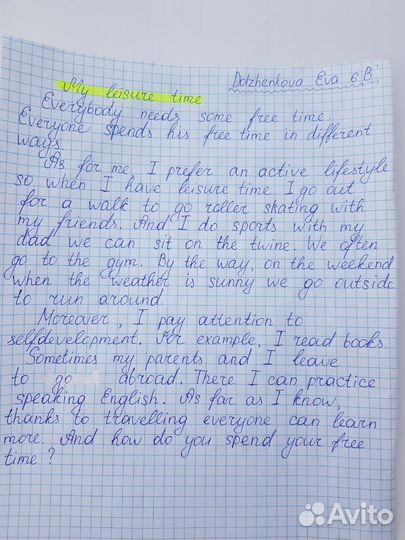 Dolzhenkova Eva 6"B"
My leisure time
Everybody needs some free time.
Everyone spends his free time in different
ways.
As for me, I prefer an active lifestyle
so when I have leisure time I go out
for a walk to go roller skating with
my friends. And I do sports with my
dad we can sit on the twine. We often
go to the gym. By the way, on the weekend
when the weather is sunny we go outside
to run around.
Moreover, I pay attention to
selfdevelopment. For example, I read books.
Sometimes my parents and I leave
to go abroad. There I can practice
speaking English. As far as I know,
thanks to travelling everyone can learn
more. And how do you spend your free
time?
Avito